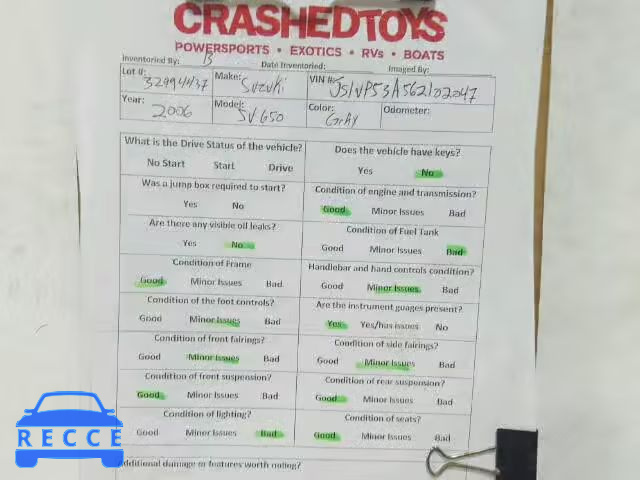 CRASHEDTOYS
POWERSPORTS • EXOTICS • RVs • BOATS
Inventoried By: B Date Inventoried: Imaged By:
Lot #: 32994437 Make: Suzuki VIN #: JS1VP53A562102047
Year: 2006 Model: SV650 Color: GrAY Odometer:
What is the Drive Status of the vehicle? Does the vehicle have keys?
No Start Start Drive Yes No
Was a jump box required to start? Condition of engine and transmission?
Yes No Good Minor Issues Bad
Are there any visible oil leaks? Condition of Fuel Tank
Yes No Good Minor Issues Bad
Condition of Frame Handlebar and hand controls condition?
Good Minor Issues Bad Good Minor Issues Bad
Condition of the foot controls? Are the instrument guages present?
Good Minor Issues Bad Yes Yes/has issues No
Condition of front fairings? Condition of side fairings?
Good Minor Issues Bad Good Minor Issues Bad
Condition of front suspension? Condition of rear suspension?
Good Minor Issues Bad Good Minor Issues Bad
Condition of lighting? Condition of seats?
Good Minor Issues Bad Good Minor Issues Bad
Additional damage or features worth noting?
RECCE